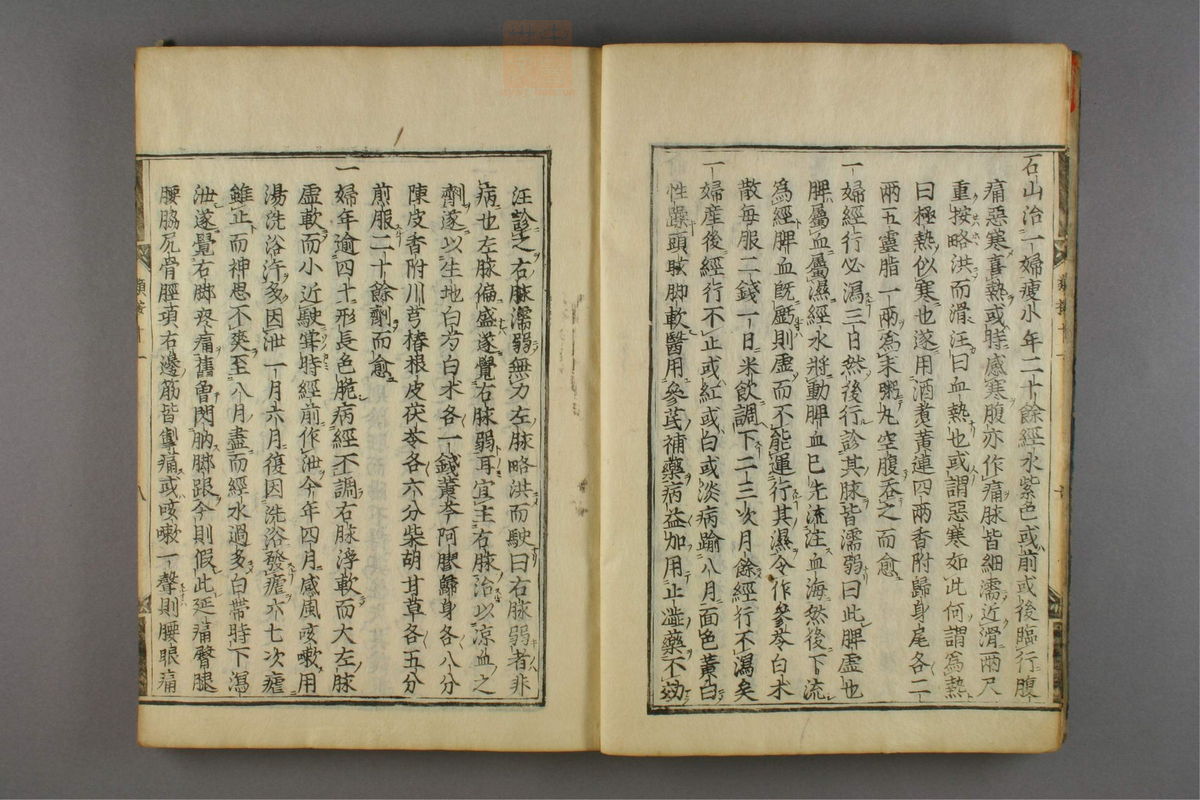 石山治一婦瘦小年二十餘經水紫色或前或後臨行腹
痛惡寒喜熱或時感寒腹亦作痛脉皆細濡近滑兩尺
重按略洪而滑汪曰血熱也或謂惡寒如此何謂為熱
曰極熱似寒也遂用酒煑黃連四兩香附歸身尾各二
兩五靈脂一兩為末粥丸空腹吞之而愈
一婦經行必瀉三日然後行診其脉皆濡弱曰此脾虚也
脾屬血屬濕經水將動脾血已先流注血海然後下流
為經脾血旣虧則虚而不能運行其濕令作參苓白术
散每服二錢一日米飲調下二三次月餘經行不瀉矣
一婦産後經行不止或紅或白或淡病踰八月面色黃白
性躁頭眩脚軟醫用參芪補藥病益加用止澁藥不効
汪診之右脉濡弱無力左脉略洪而駛曰右脉弱者非
病也左脉偏盛遂覺右脉弱耳宜主右脉治以凉血之
劑遂以生地白芍白术各一錢黃芩阿膠歸身各八分
陳皮香附川芎椿根皮茯苓各六分柴胡甘草各五分
煎服二十餘劑而愈
一婦年逾四十形長色脆病經不調右脉浮軟而大左脉
虚軟而小近駛常時經前作泄今年四月感風咳嗽用
湯洗浴汗多因泄一月六月復因洗浴發瘧六七次瘧
雖止而神思不爽至八月盡而經水過多白帶時下瀉
泄遂覺右脚疼痛舊曽閃肭脚跟今則假此延痛臀腿
腰脇尻骨脛項右邊筋皆掣痛或咳嗽一聲則腰眼痛